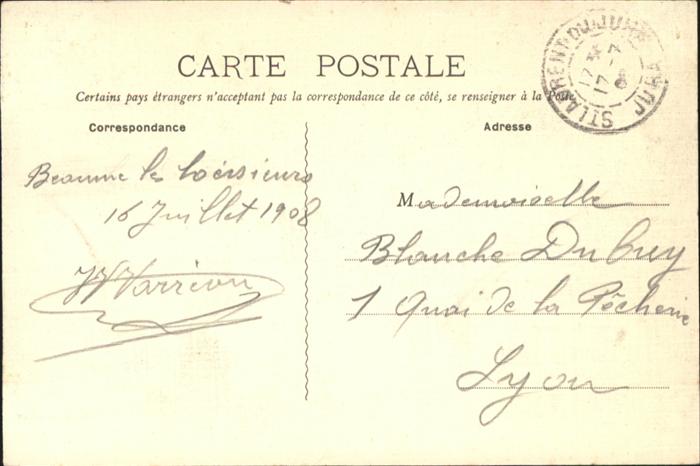 CARTE POSTALE
Certains pays étrangers n'acceptant pas la correspondance de ce côté, se renseigner à la Poste
Correspondance
Beaume les
16 Juillet 1908
Adresse
Mademoiselle
Blanche Dubuy
1 Quai de la Pêcherie
Lyon
ST LAURENT DU JURA
JURA
17-7